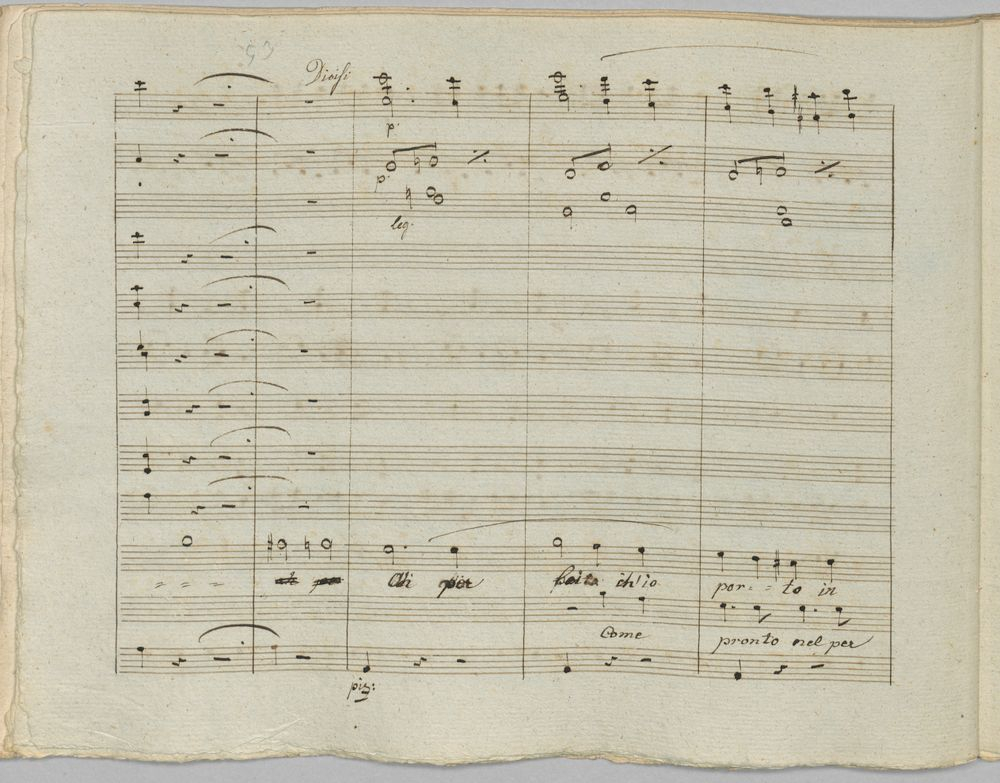 53
Divisi
p.
p.
leg.
= = =
Chi per
ch'io
por = = to in
Come
pronto nel per
piz: